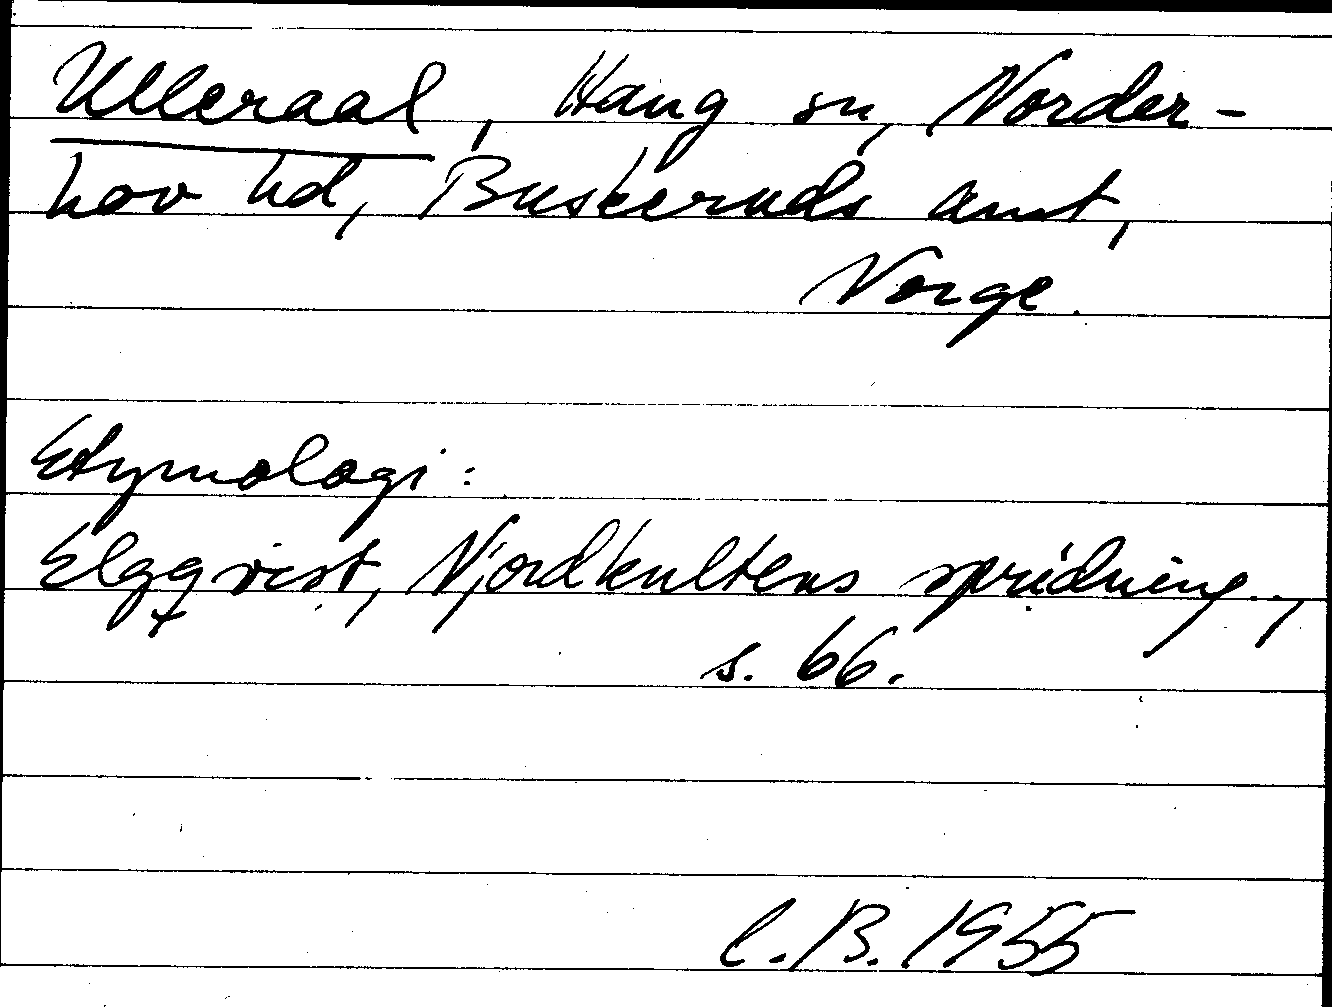 Ulleraal, Haug sn, Norder-
hov hd, Buskeruds amt,
Norge.
Etymologi:
Elgqvist, Njordkultens spridning..,
s. 66.
C.B. 1955